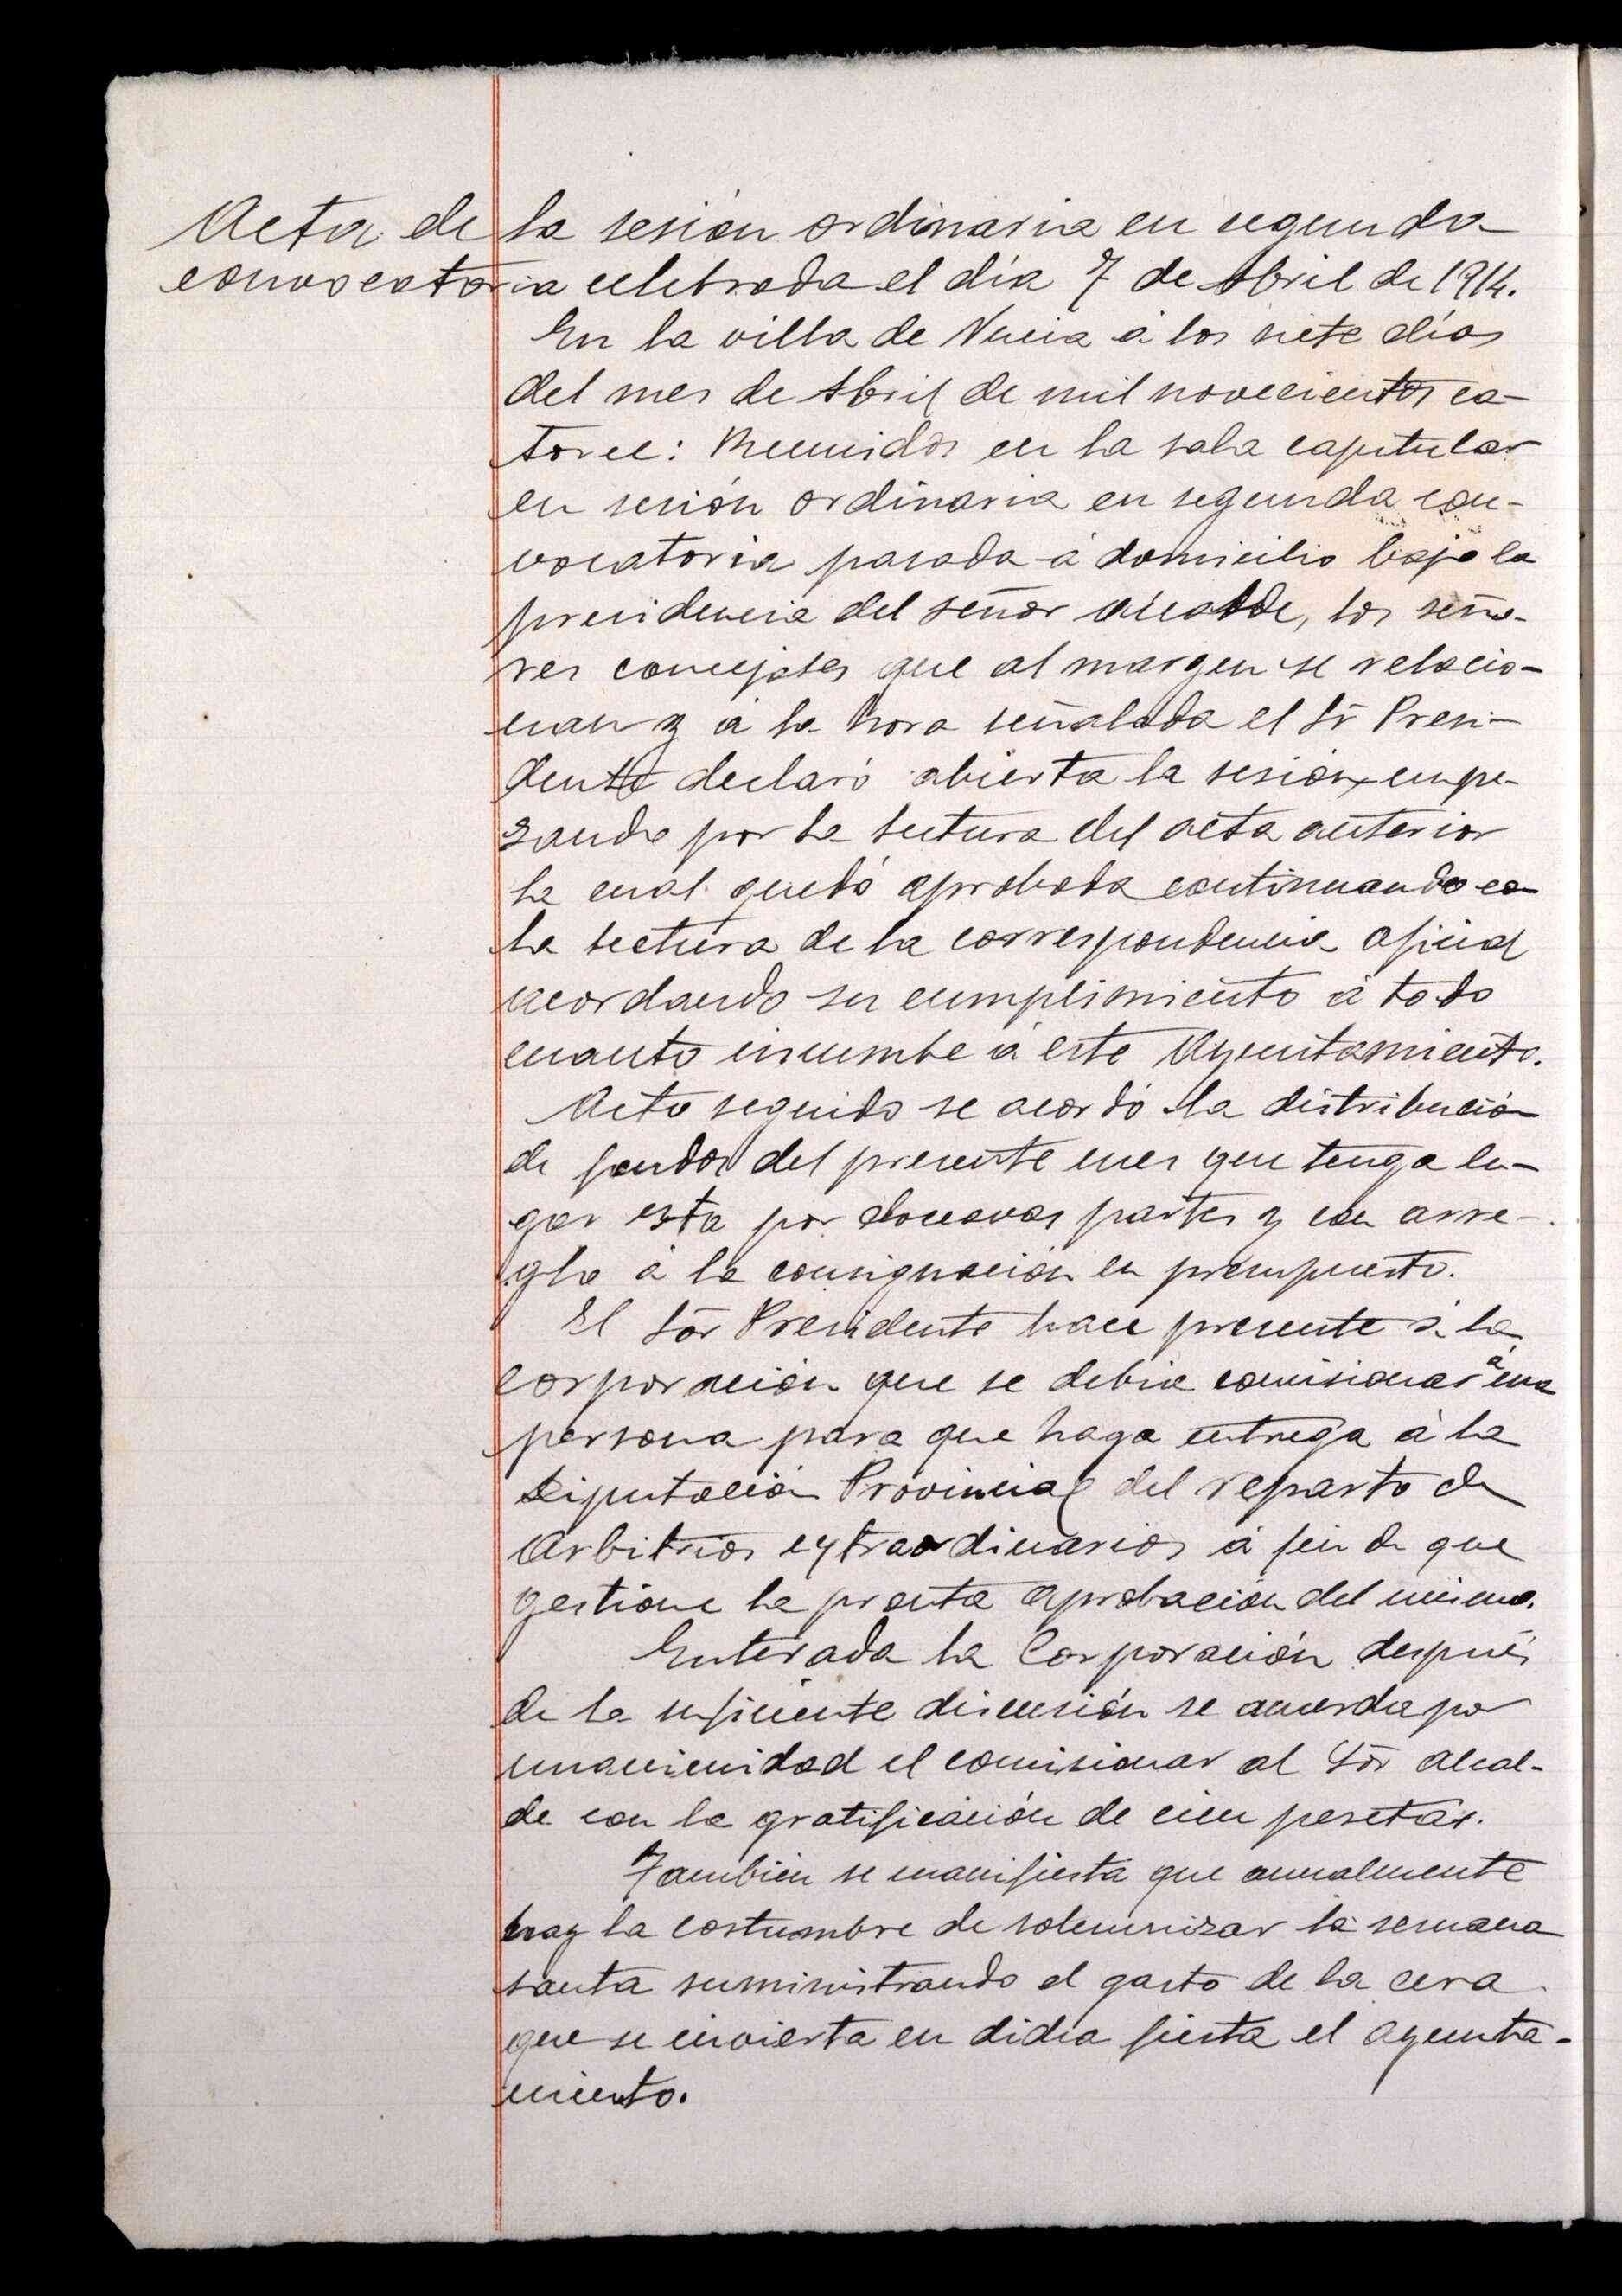 Acta de la sesión ordinaria en segunda
convocatoria celebrada el día 7 de Abril de 1914.
En la villa de Nucia á los siete días
del mes de Abril de mil novecientos ca-
torce: Reunidos en la sala capitular
en sesión ordinaria en segunda con-
vocatoria pasada á domicilio bajo la
presidencia del señor Alcalde, los seño-
res concejales que al margen se relacio-
nan y á la hora señalada el Sr̃ Presi-
dente declaró abierta la sesión, empe-
zando por la lectura del acta anterior
la cual quedó aprobada continuando con
la lectura de la correspondencia oficial
acordando su cumplimiento á todo
cuanto incumbe á este Ayuntamiento.
Acto seguido se acordó la distribución
de fondos del presente mes que tenga lu-
gar esta por docevas partes y con arre-
glo á la consignación en presupuesto.
El Sõr Presidente hace presente á la
corporación que se debia comisionar á una
persona para que haga entrega á la
Diputación Provincial del reparto de
Arbitrios extraordinarios á fin de que
gestione la pronta aprobación del mismo.
Enterada la Corporación después
de la suficiente discusión se acuerda por
unanimidad el comisionar al Sõr Alcal-
de con la gratificación de cien pesetas.
Tambien se manifiesta que anualmente
hay la costumbre de solemnizar la semana
santa suministrando el gasto de la cera
que se invierta en dicha fiesta el Ayunta-
miento.